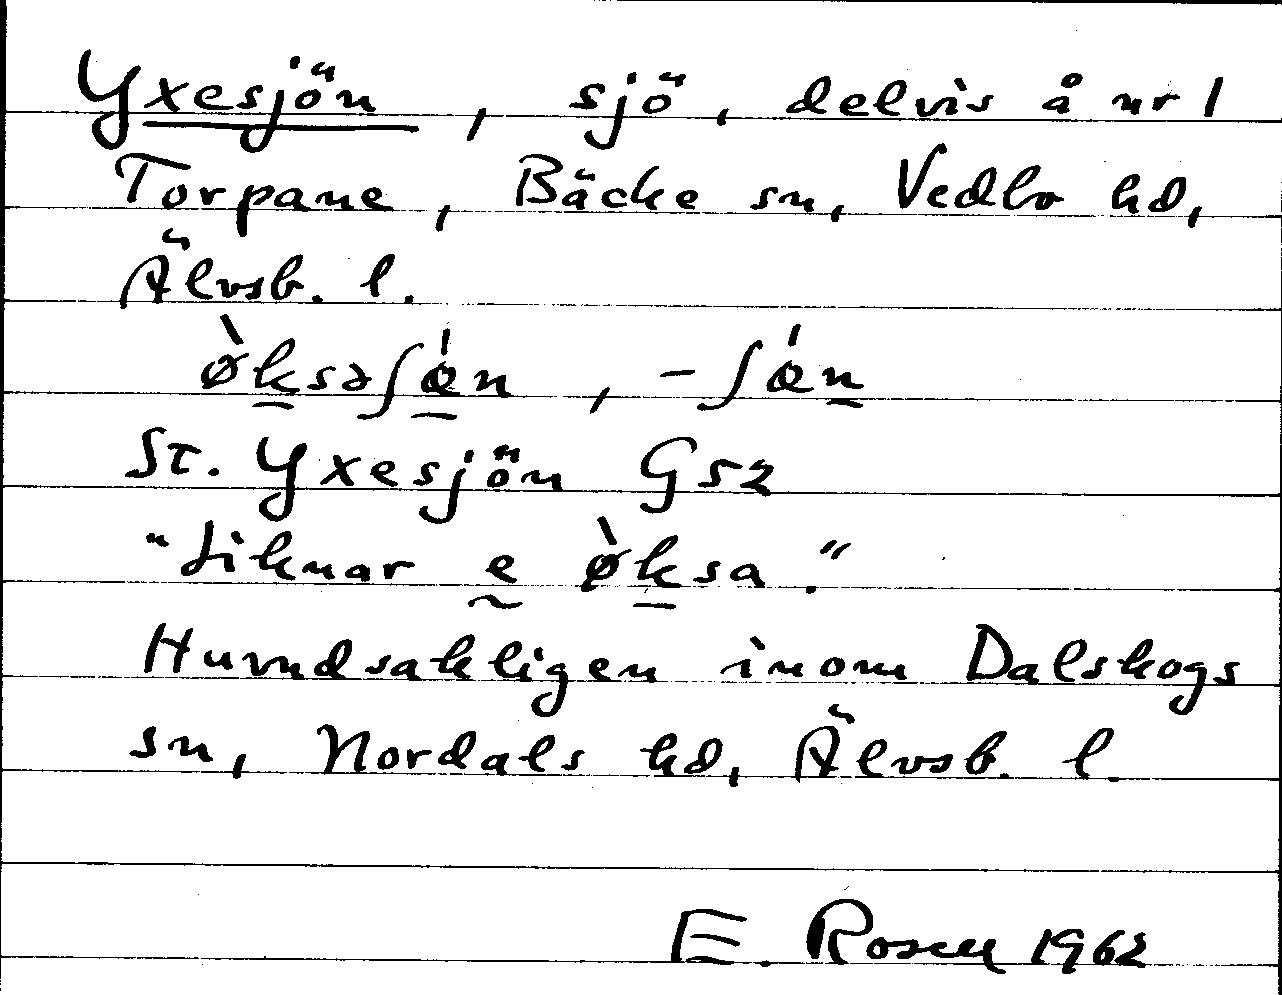 Yxesjön, sjö, delvis å nr 1
Torpane, Bäcke sn, Vedbo hd,
Älvsb. l.
ø̀k̠səʃœ̠́n, -ʃœ́n̠
St. Yxesjön G52
"Liknar ḛ ø̀k̠sa."
Huvudsakligen inom Dalskogs
sn, Nordals hd, Älvsb. l.
E. Rosell 1962